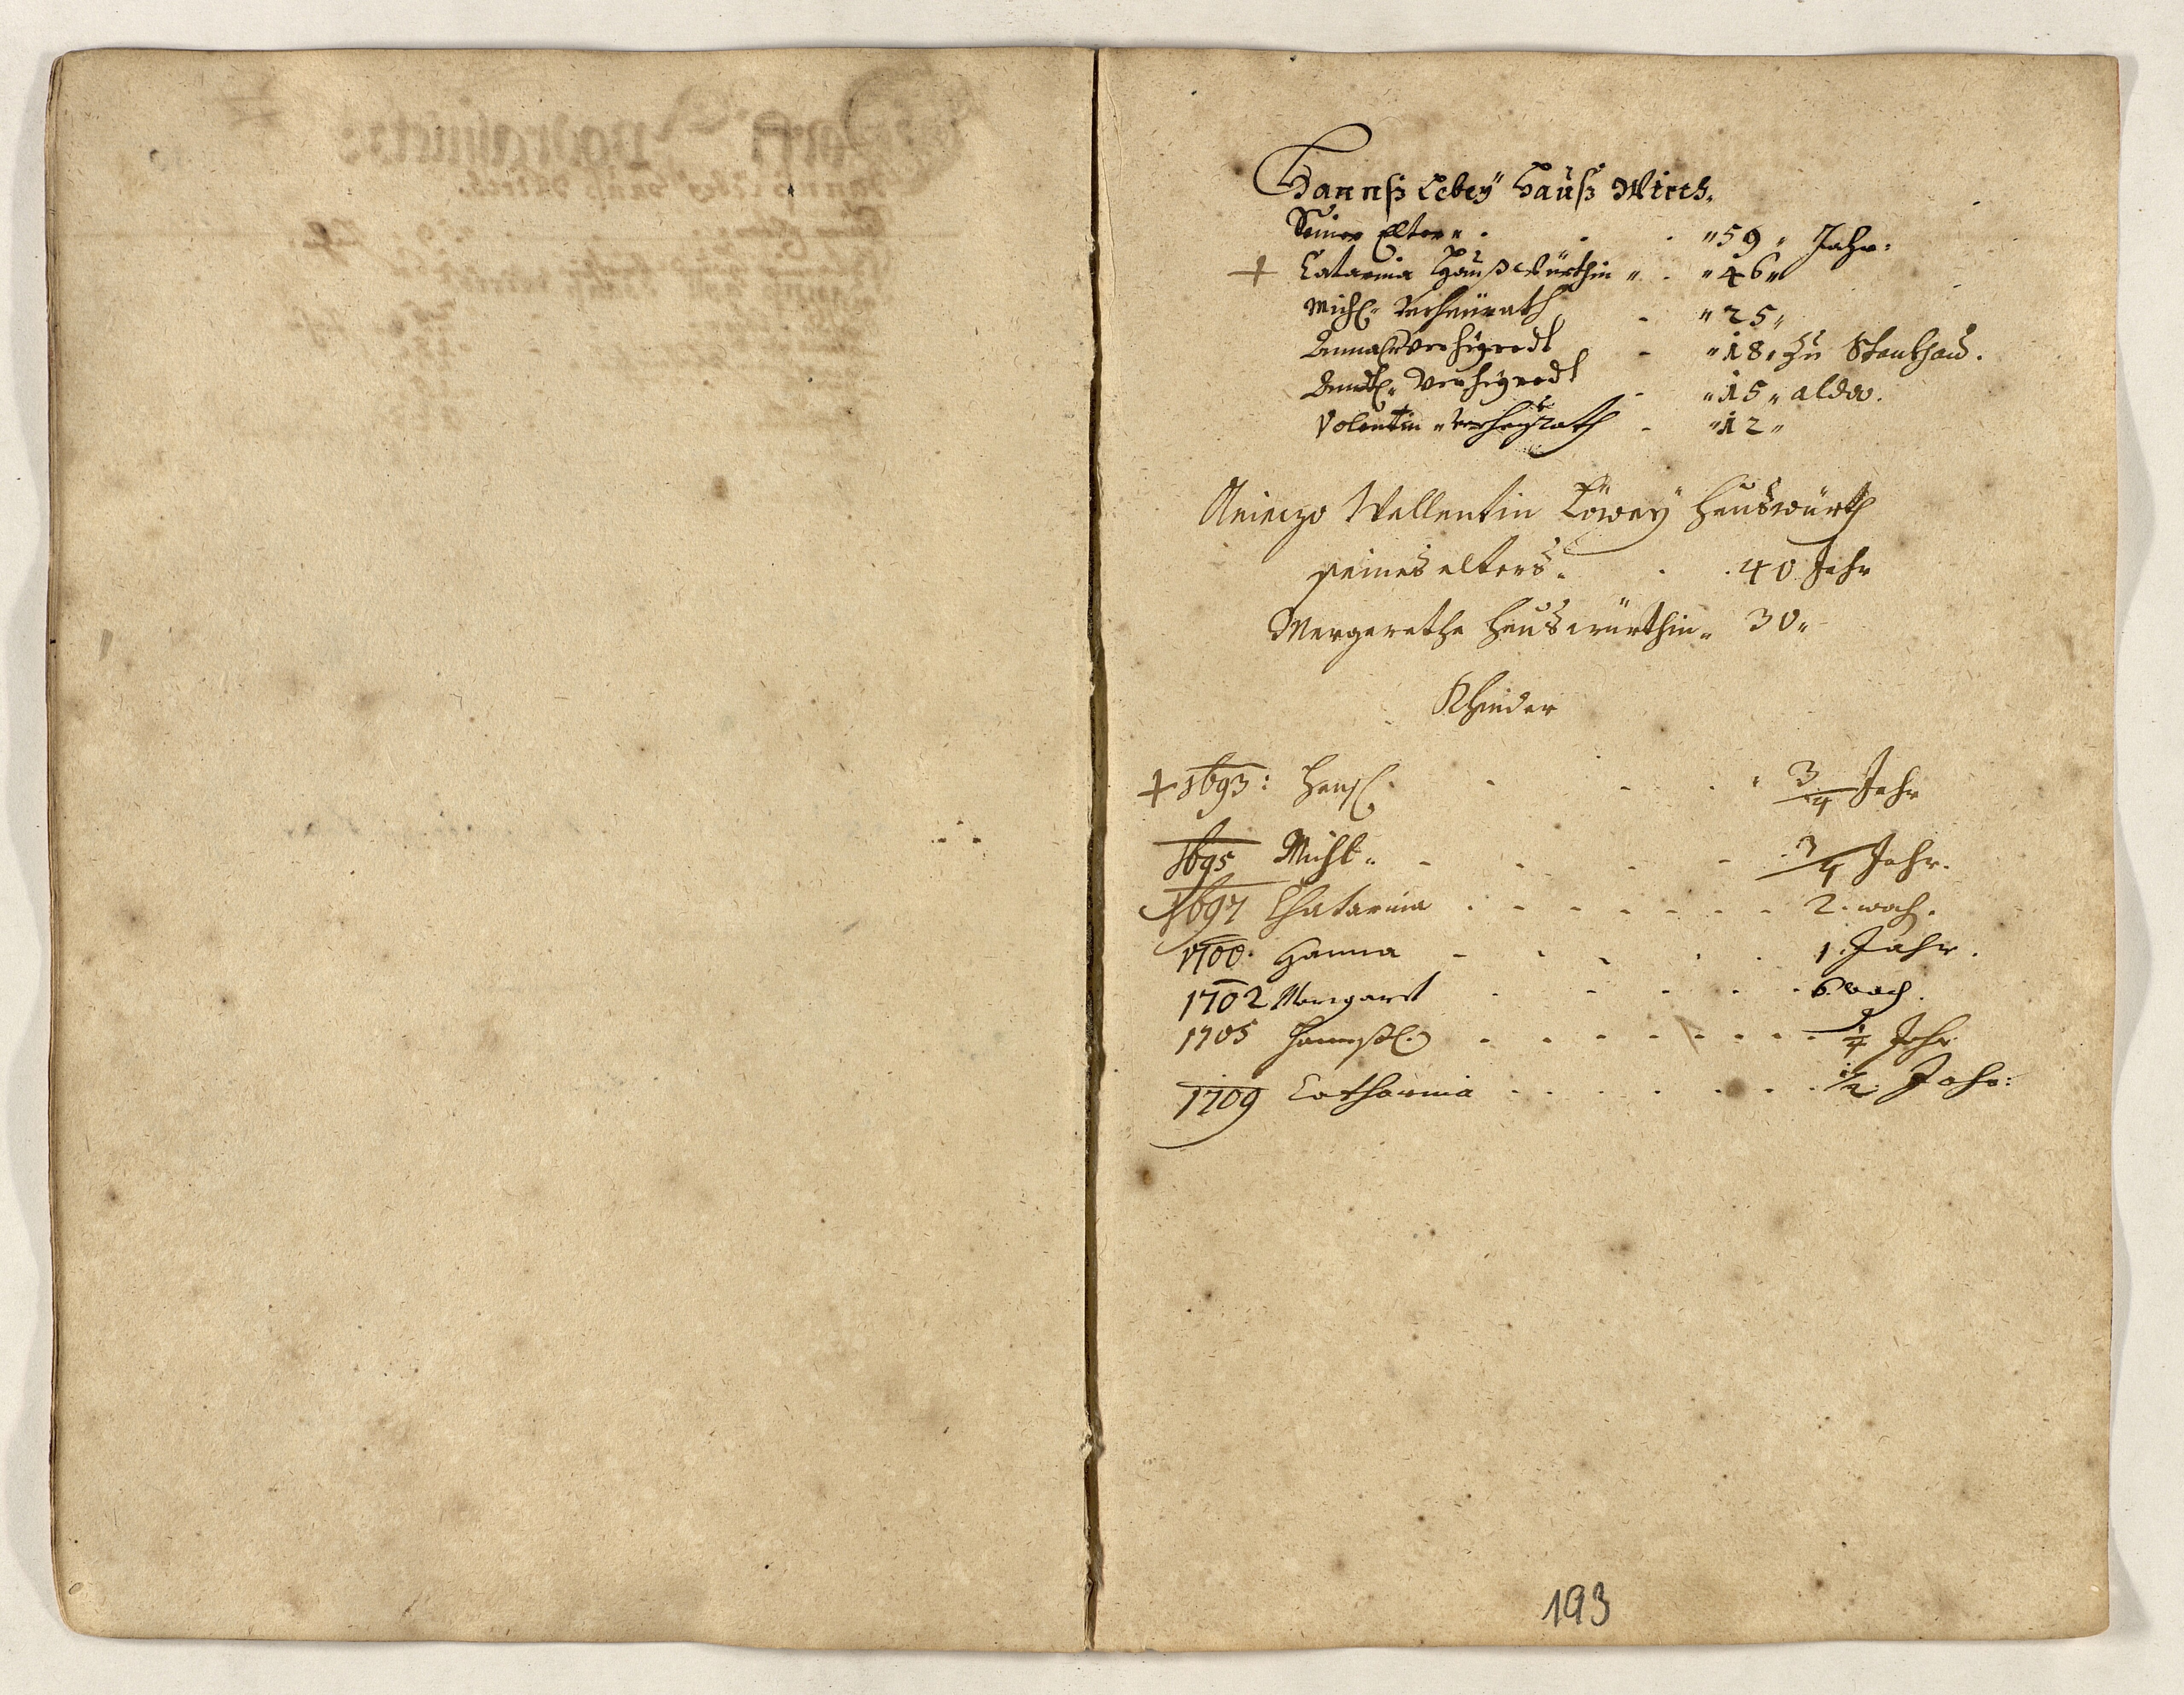 Hannß Lebeÿ Hauß Wirth.
Seines Elter „ . . . „ 59 „ Jahr:
+ Catarina Haußwürthin „ . „ 46 „
Michl „ verheürath - „ 25 „
verheyrodt - „ 18 „ zu
verheyrodt - „ 15 „ alda.
Valentin „ verheÿrath - „ 12 „
Vallentin Löweÿ Hauswürth
seines alters . . . 40 Jahr
Margaretha Hauswürthin „ 30 „
Khinder
+ 1693 : Hansl . . . . 3/4 Jahr
1695 Michl „ - - - - 3/4 Jahr.
1697 Chatarina . - - - - - - 2 . woch .
1700 . Hanna - - - . . 1 . Jahr .
1702 Margaret . - - - - 6 woch .
1705 Hannßl . . - - - - - - - 1/4 Jahr
1709 Catharina . . . . - - - . 1/2 Jahr :
193